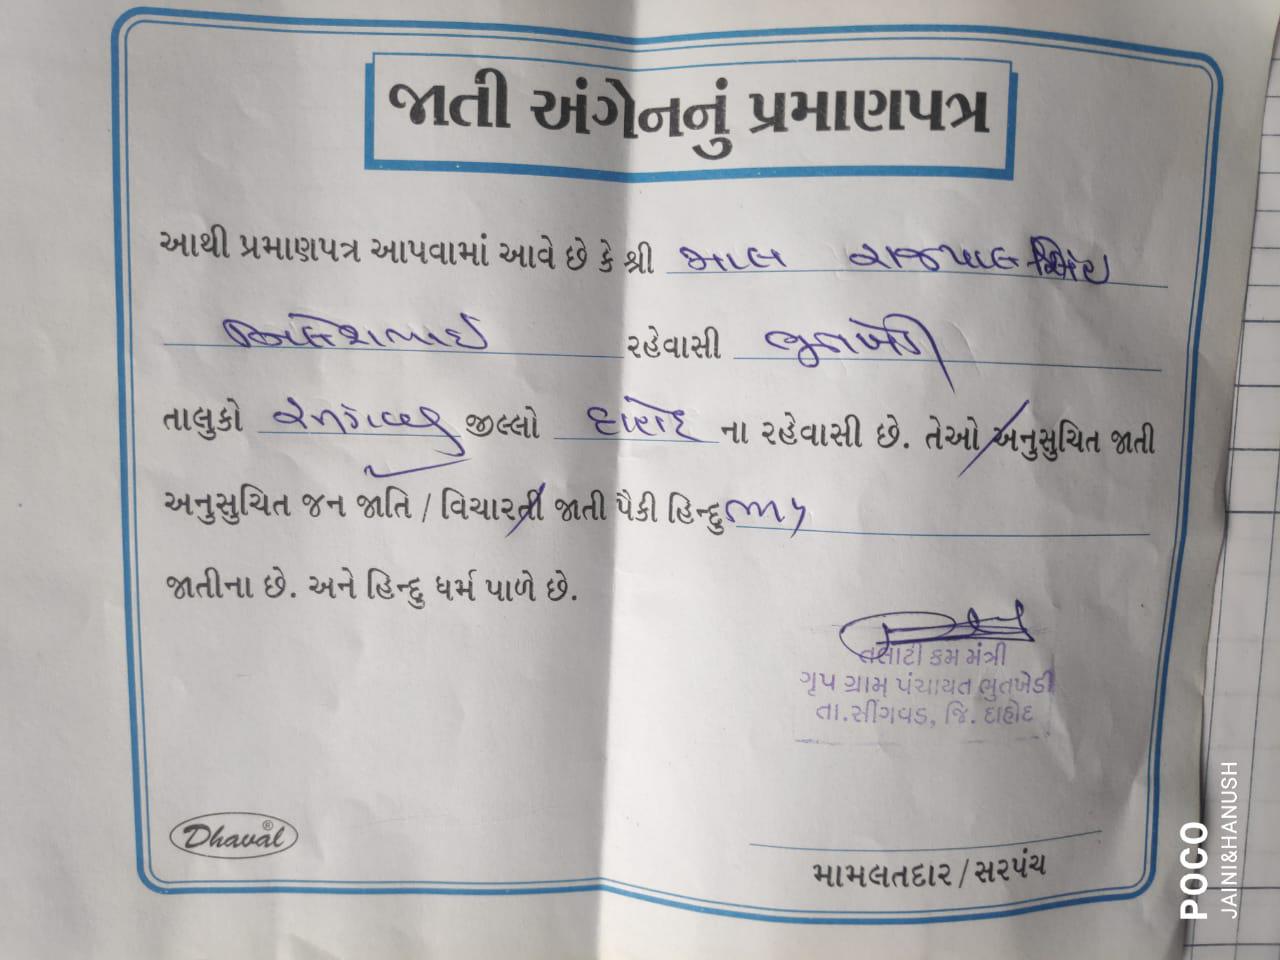 જાતી અંગેનનું પ્રમાણપત્ર
આથી પ્રમાણપત્ર આપવામાં આવે છે કે શ્રી માલ રાજપાલસિંહ
રહેવાસી ભુતખેડી
તાલુકો જીલ્લો દાહોદ ના રહેવાસી છે. તેઓ અનુસુચિત જાતી
અનુસુચિત જન જાતિ / વિચારતી જાતી પૈકી હિન્દુ
જાતીના છે. અને હિન્દુ ધર્મ પાળે છે.
તલાટી કમ મંત્રી
ગૃપ ગ્રામ પંચાયત ભુતખેડી
તા.સીંગવડ, જિ. દાહોદ
Dhaval®
મામલતદાર / સરપંચ
POCO
JAINI&HANUSH